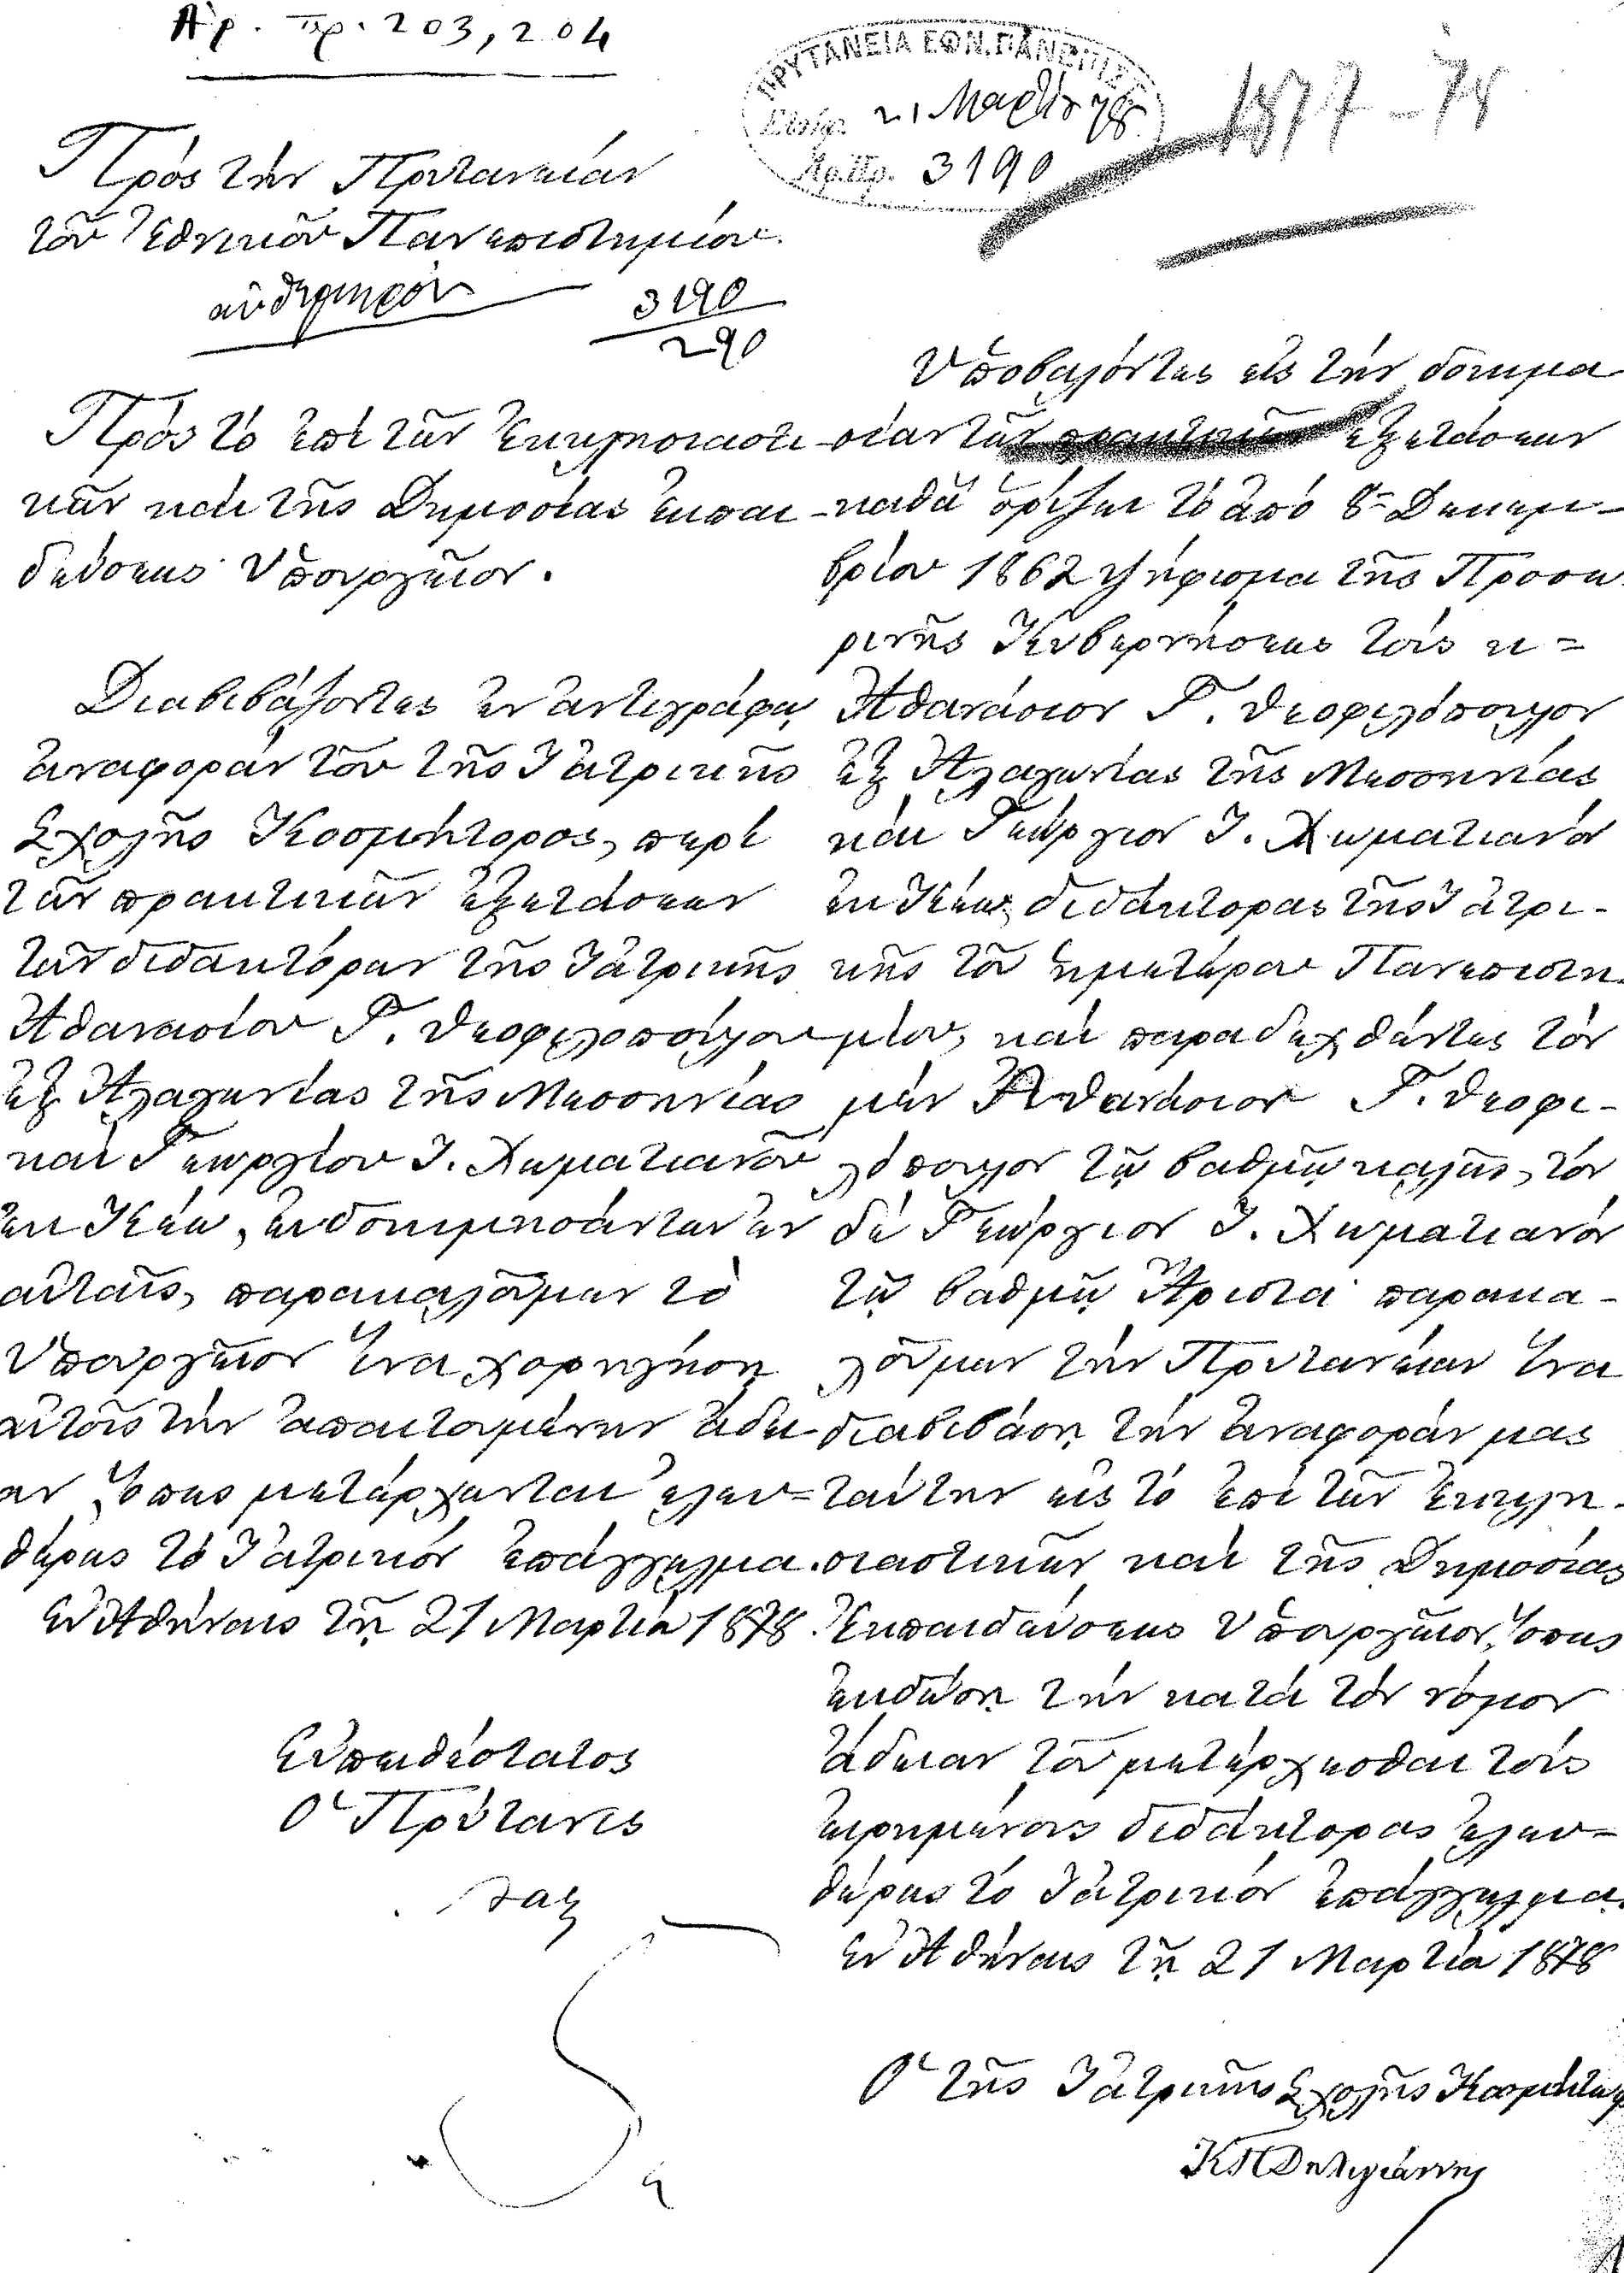 Ἀρ. πρ. 203, 204
ΠΡΥΤΑΝΕΙΑ ΕΘΝ. ΠΑΝΕΠΙΣΤ.
21 Μαρτίου 78
Ἀρ.Πρ. 3190
1877-78
Πρὸς τὴν Πρυτανείαν
τοῦ Ἐθνικοῦ Πανεπιστημίου.
αὐθημερόν
3190
290
Πρὸς τὸ ἐπὶ τῶν Ἐκκλησιαστι-
κῶν καὶ τῆς Δημοσίας Ἐκπαι-
δεύσεως Ὑπουργεῖον.
Διαβιβάζοντες ἐν ἀντιγράφῳ
ἀναφορὰν τοῦ τῆς Ἰατρικῆς
Σχολῆς Κοσμήτορος, περὶ
τῶν πρακτικῶν ἐξετάσεων
τῶν διδακτόρων τῆς Ἰατρικῆς
Ἀθανασίου Γ. Θεοφιλοπούλου
ἐξ Ἀλαγωνίας τῆς Μεσσηνίας
καὶ Γεωργίου Ι. Χωματιανοῦ
ἐκ Κέω, εὐδοκιμησάντων ἐν
αὐταῖς, παρακαλοῦμεν τὸ
Ὑπουργεῖον ἵνα χορηγήσῃ
αὐτοῖς τὴν ἀπαιτουμένην ἄδει-
αν, ὅπως μετέρχωνται ἐλευ=
θέρως τὸ Ἰατρικὸν ἐπάγγελμα.
Ἐν Ἀθήναις τῇ 21 Μαρτίου 1878.
Εὐπειθέστατος
Ὁ Πρύτανις
Ὑποβαλόντες εἰς τὴν δοκιμα
σίαν τῶν πρακτικῶν ἐξετάσεων
καθὰ ὁρίζει τὸ ἀπὸ 8 Δεκεμ-
βρίου 1862 ψήφισμα τῆς Προσω
ρινῆς Κυβερνήσεως τοὺς κ=
Ἀθανάσιον Γ. Θεοφιλόπουλον
ἐξ Ἀλαγωνίας τῆς Μεσσηνίας
καὶ Γεώργιον Ι. Χωματιανὸν
ἐκ Κέω, διδάκτορας τῆς Ἰατρι-
κῆς τοῦ ἡμετέρου Πανεπιστη-
μίου, καὶ παραδεχθέντες τὸν
μὲν Ἀθανάσιον Γ. Θεοφι-
λόπουλον τῷ βαθμῷ καλῶς, τὸν
δὲ Γεώργιον Ι. Χωματιανὸν
τῷ βαθμῷ Ἄριστα παρακα-
λοῦμεν τὴν Πρυτανείαν ἵνα
διαβιβάσῃ τὴν ἀναφοράν μας
ταύτην εἰς τὸ ἐπὶ τῶν Ἐκκλη-
σιαστικῶν καὶ τῆς Δημοσίας
Ἐκπαιδεύσεως Ὑπουργεῖον, ὅπως
ἐκδώσῃ τὴν κατὰ τὸν νόμον
ἄδειαν τοῦ μετέρχεσθαι τοὺς
εἰρημένους διδάκτορας ἐλευ=
θέρως τὸ Ἰατρικὸν ἐπάγγελμα.
Ἐν Ἀθήναις τῇ 21 Μαρτίου 1878
Ὁ τῆς Ἰατρικῆς Σχολῆς Κοσμήτωρ
ΚΠΔηλιγιάννης